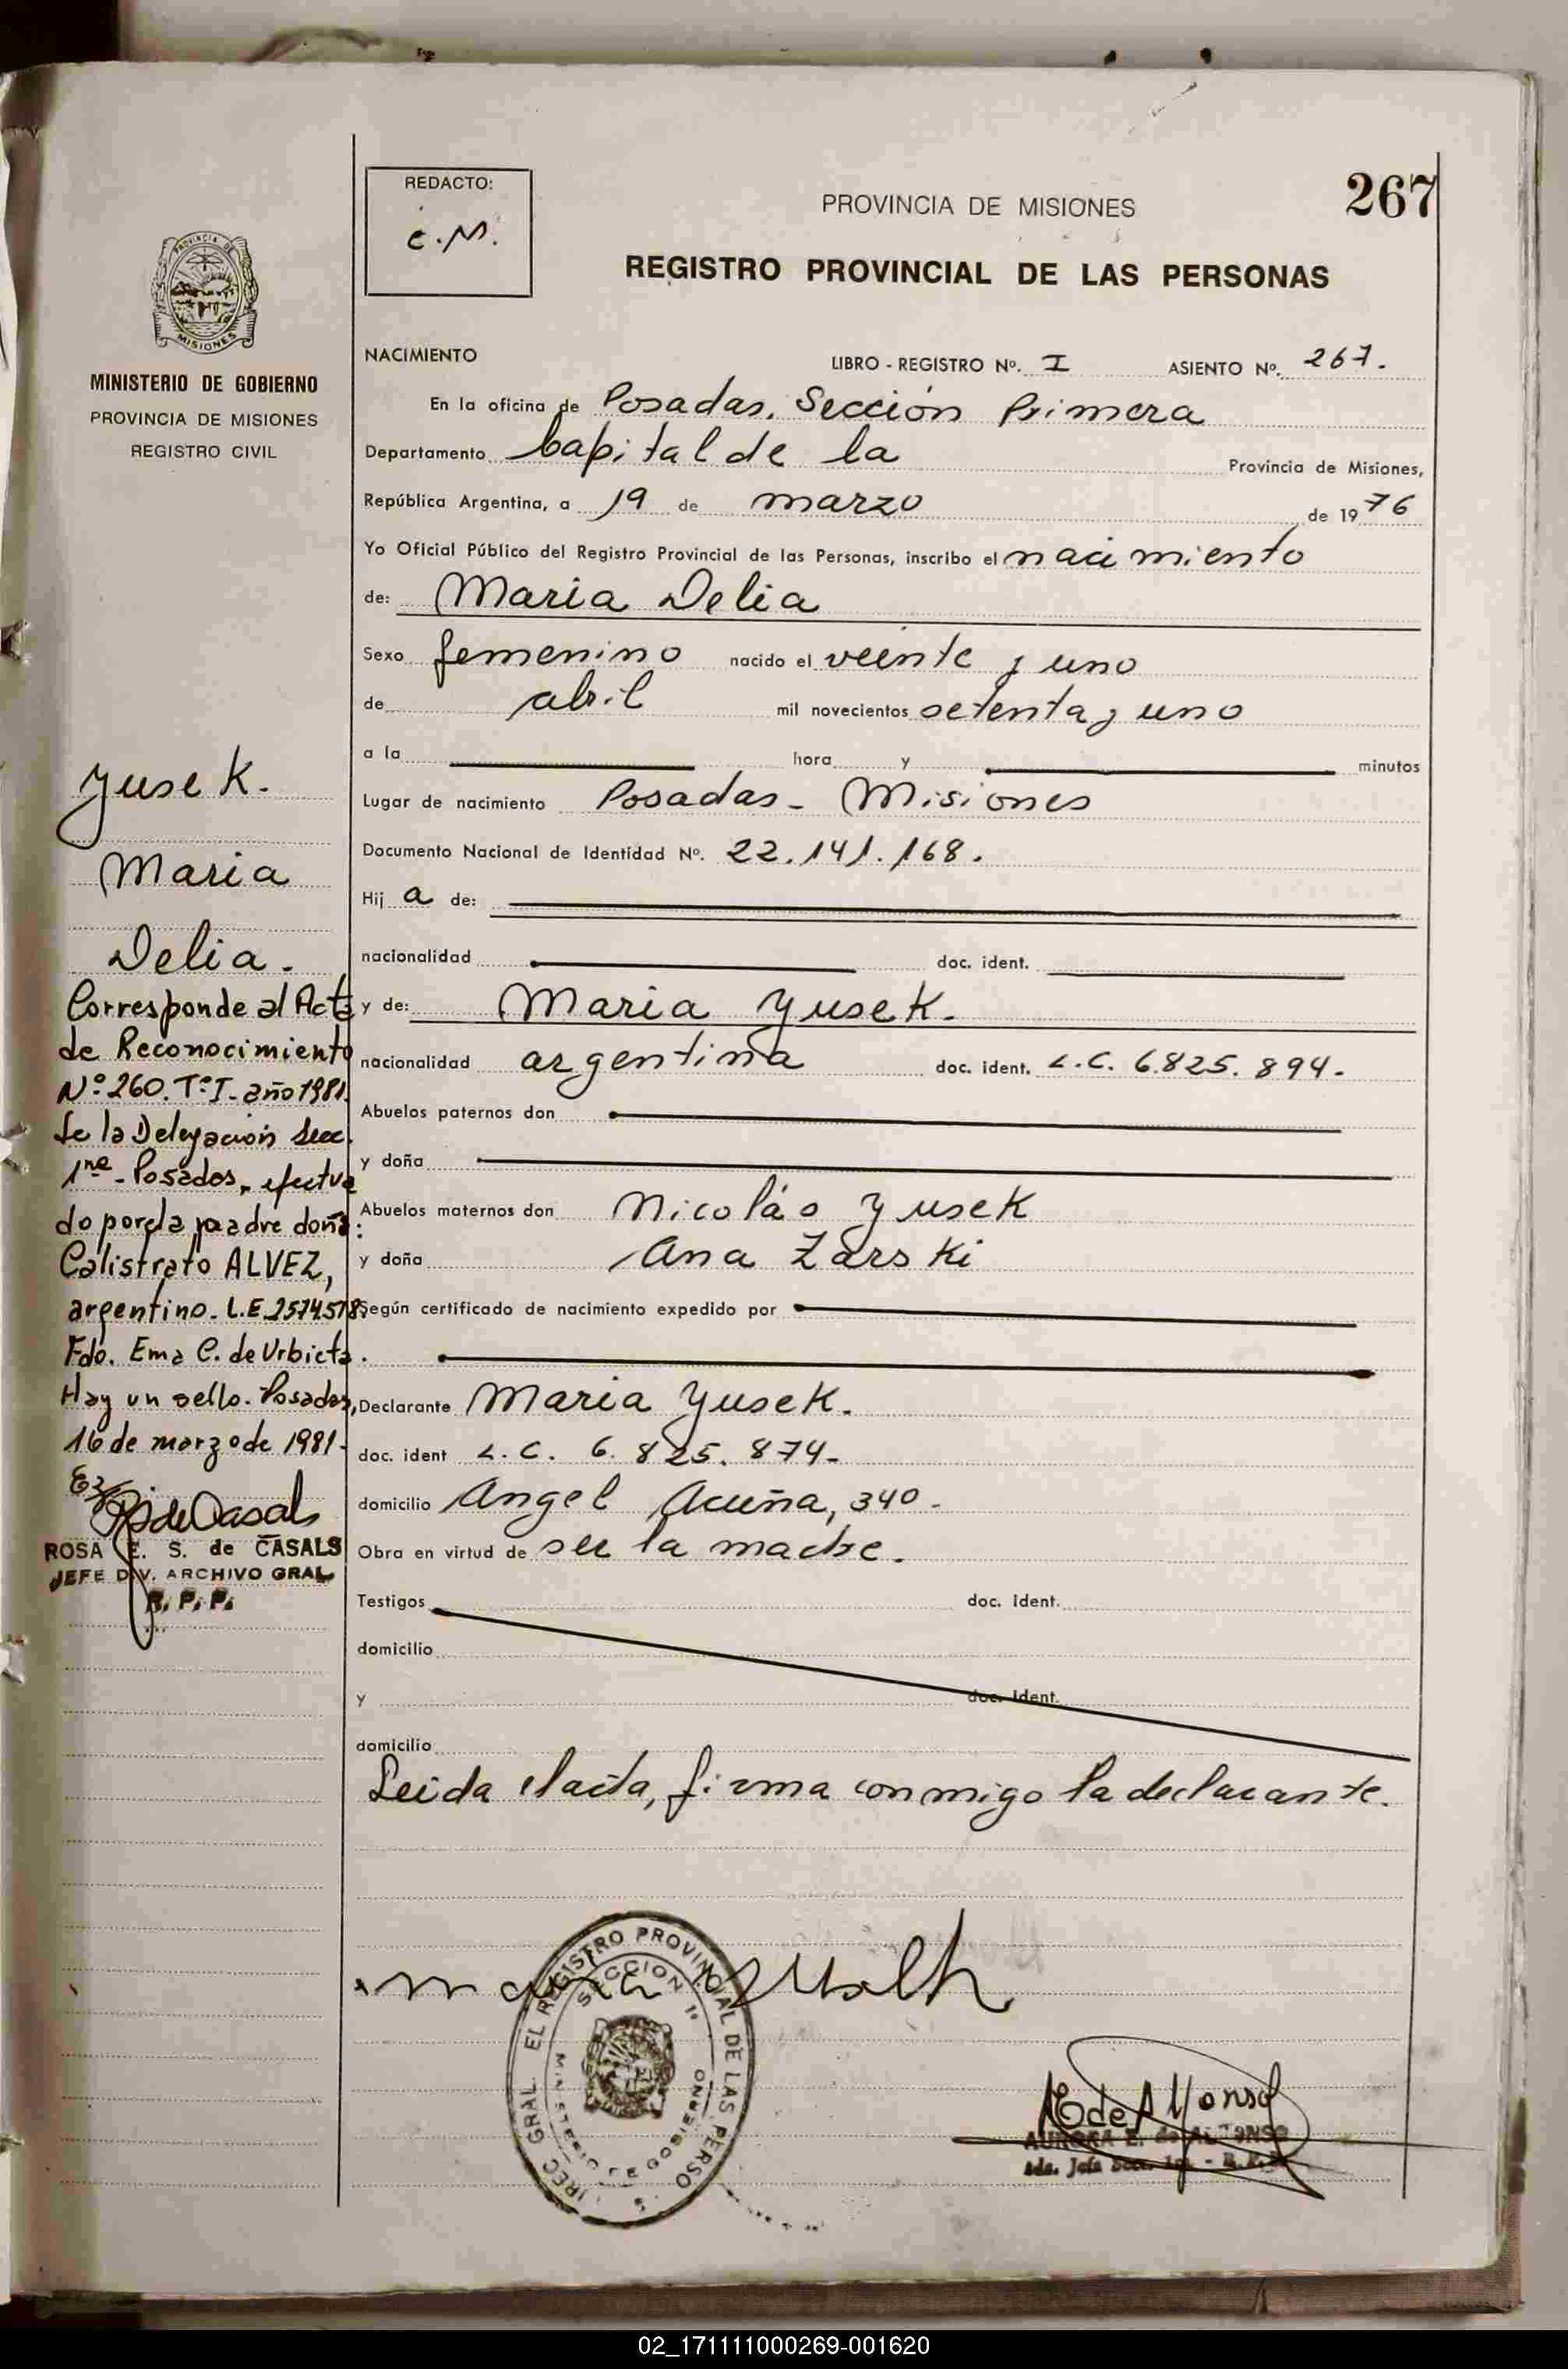 267
REDACTO:
C.M.
PROVINCIA DE MISIONES
REGISTRO PROVINCIAL DE LAS PERSONAS
PROVINCIA DE
MISIONES
MINISTERIO DE GOBIERNO
PROVINCIA DE MISIONES
REGISTRO CIVIL
NACIMIENTO LIBRO - REGISTRO Nº. I ASIENTO Nº. 267.
En la oficina de Posadas, Sección Primera
Departamento Capital de la Provincia de Misiones,
República Argentina, a 19 de marzo de 1976
Yo Oficial Público del Registro Provincial de las Personas, inscribo el nacimiento
de: Maria Delia
Sexo femenino nacido el veinte y uno
de abril mil novecientos setenta y uno
a la hora y minutos
Lugar de nacimiento Posadas - Misiones
Documento Nacional de Identidad Nº. 22.141.168.
Hij a de:
nacionalidad doc. ident.
y de: Maria Yusek.
nacionalidad argentina doc. ident. L.C. 6.825.894-
Abuelos paternos don
y doña
Abuelos maternos don Nicolás Yusek
y doña Ana Zarski
Según certificado de nacimiento expedido por
Declarante Maria Yusek.
doc. ident L.C. 6.825.874-
domicilio Angel Acuña, 340-
Obra en virtud de ser la madre.
Testigos doc. ident.
domicilio
y doc. ident.
domicilio
Leida el acta, firma conmigo la declarante.
Yusek.
Maria
Delia.
Corresponde al Acta
de Reconocimiento
Nº 260. Tº I- año 1981.
de la Delegación Secc.
1ra - Posadas, efectua
do por la padre doña:
Calistrato ALVEZ,
argentino- L.E. 2574578.
Fdo. Ema C. de Urbieta.
Hay un sello. Posadas,
16 de marzo de 1981-
R S de Casals
ROSA E. S. de CASALS
JEFE DIV. ARCHIVO GRAL
R. P. P.
Maria Yusek
DIREC GRAL. EL REGISTRO PROVINCIAL DE LAS PERSO
SECCION 1ª
MINISTERIO DE GOBIERNO
A E de Alfonso
AURORA E. de ALFONSO
02_171111000269-001620